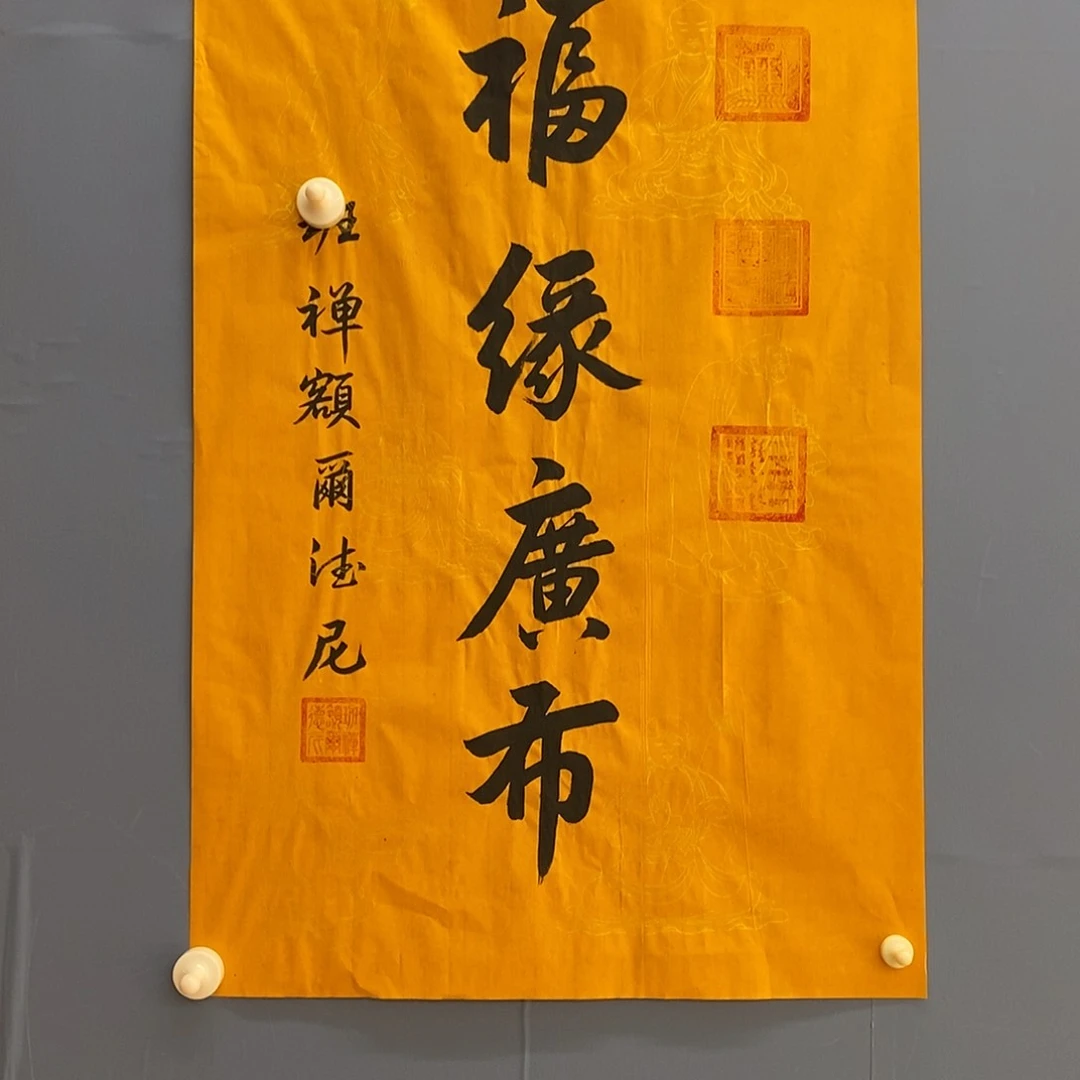 福緣廣布
班禅額爾德尼